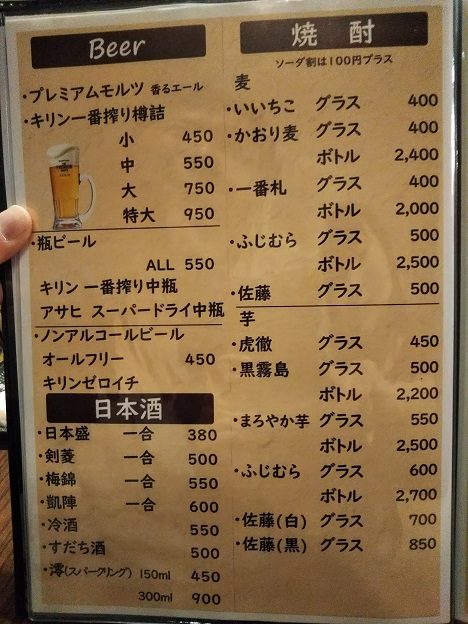 Beer
・プレミアムモルツ 香るエール
・キリン一番搾り樽詰
小 450
中 550
大 750
特大 950
・瓶ビール
ALL 550
キリン 一番搾り中瓶
アサヒ スーパードライ中瓶
・ノンアルコールビール
オールフリー 450
キリンゼロイチ
日本酒
・日本盛 一合 380
・剣菱 一合 500
・梅錦 一合 550
・凱陣 一合 600
・冷酒 550
・すだち酒 500
・澪(スパークリング) 150ml 450
300ml 900
焼酎
ソーダ割は100円プラス
麦
・いいちこ グラス 400
・かおり麦 グラス 400
ボトル 2,400
・一番札 グラス 400
ボトル 2,000
・ふじむら グラス 500
ボトル 2,500
・佐藤 グラス 500
芋
・虎徹 グラス 450
・黒霧島 グラス 500
ボトル 2,200
・まろやか芋 グラス 550
ボトル 2,500
・ふじむら グラス 600
ボトル 2,700
・佐藤(白) グラス 700
・佐藤(黒) グラス 850